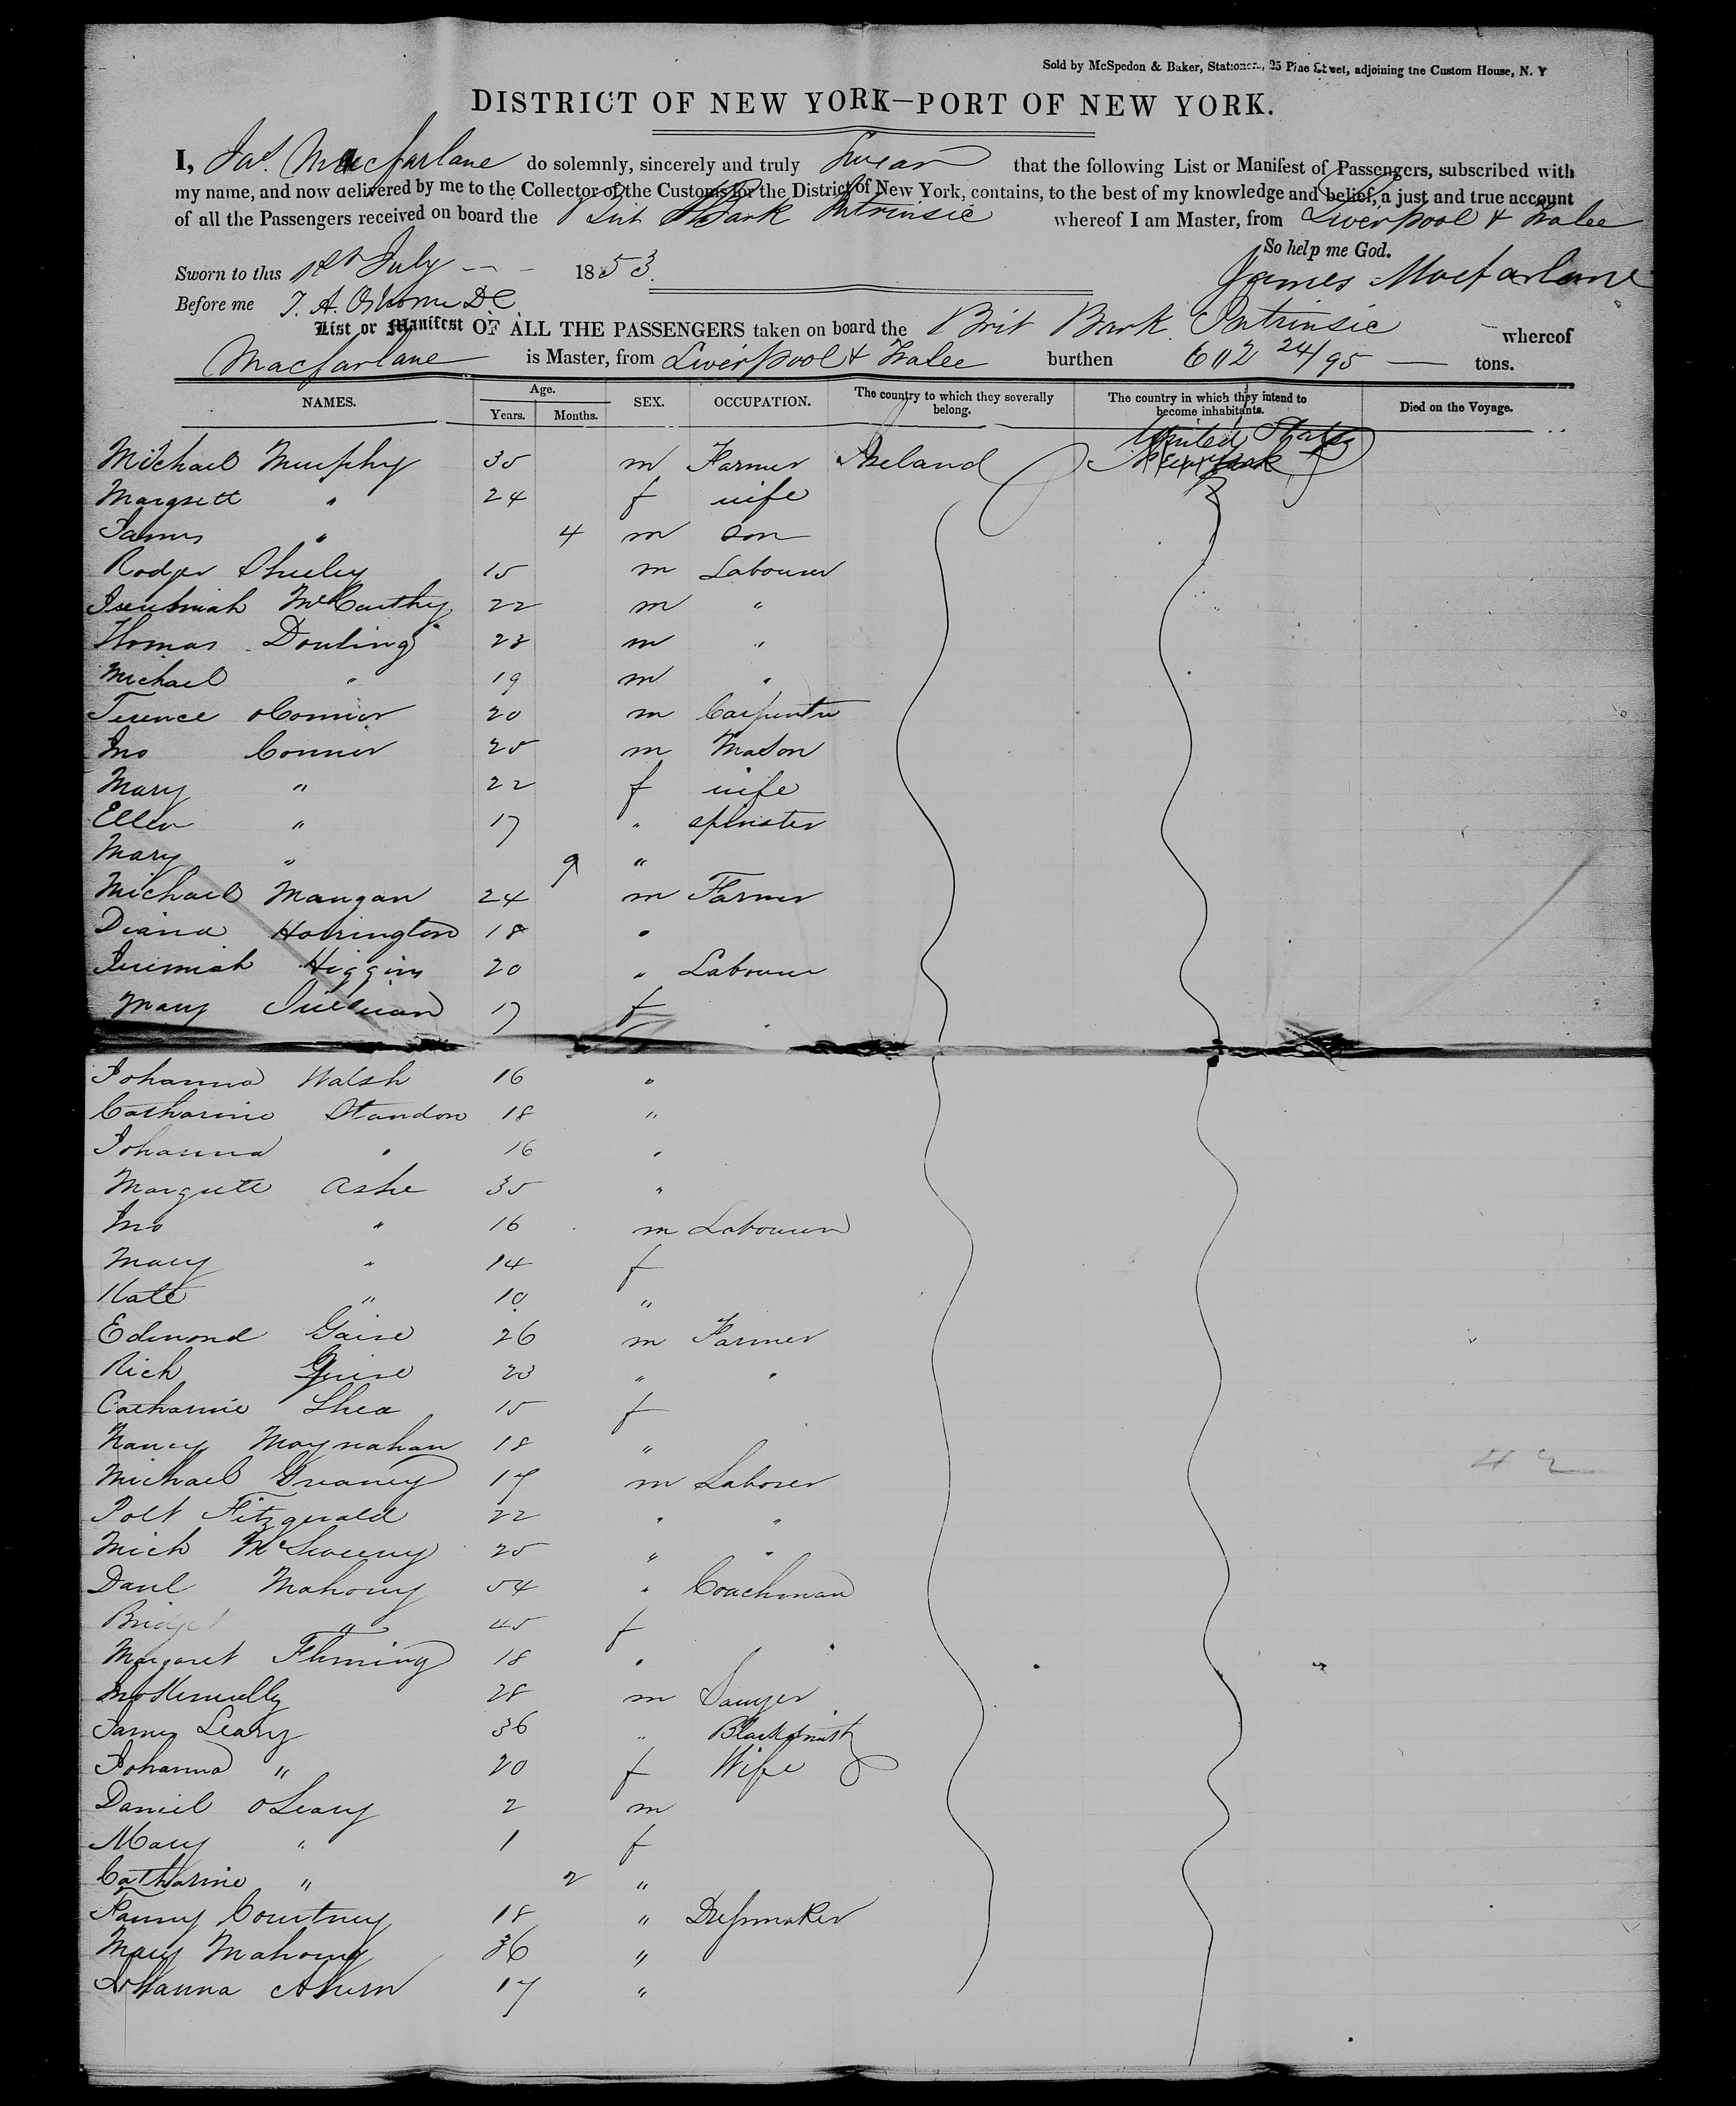 Sold by McSpedon & Baker, Stationers, 25 Pine Street, adjoining the Custom House, N. Y
DISTRICT OF NEW YORK—PORT OF NEW YORK.
I, Jas. Macfarlane do solemnly, sincerely and truly Swear that the following List or Manifest of Passengers, subscribed with
my name, and now delivered by me to the Collector of the Customs for the District of New York, contains, to the best of my knowledge and belief, a just and true account
of all the Passengers received on board the Brit Bark Intrinsic whereof I am Master, from Liverpool & Tralee
So help me God.
Sworn to this 1st July 1853.
James Macfarlane
Before me T. A. Osborne D C
List or Manifest OF ALL THE PASSENGERS taken on board the Brit Bark Intrinsic whereof
Macfarlane is Master, from Liverpool & Tralee burthen 602 24/95 tons.
NAMES. Age. Years. Months. SEX. OCCUPATION. The country to which they severally belong. The country in which they intend to become inhabitants. Died on the Voyage.
United States
Michael Murphy 35 m Farmer Ireland New York
Margrett " 24 f wife
James " 4 m son
Rodger Sheeley 15 m Labourer
Jeremiah McCarthy 22 m "
Thomas Douling 23 m "
Michael " 19 m "
Terence oConnor 20 m Carpenter
Jno Connor 25 m Mason
Mary " 22 f wife
Ellen " 17 " spinster
Mary " 9 "
Michael Mangan 24 m Farmer
Diana Horrington 18 "
Jeremiah Higgins 20 " Labourer
Mary Sullivan 17 f
Johanna Walsh 16 "
Catharine Standon 18 "
Johanna " 16 "
Margrete Ashe 35 "
Jno " 16 m Labourer
Mary " 14 f
Kate " 10 "
Edmond Gaise 26 m Farmer
Rich 23 " "
Catharine Shea 15 f
Nancy Moynahan 18 "
Michael Greaney 17 m Laborer
Patt Fitzgerald 22 " "
Mich McSweeny 25 " "
Danl Mahony 54 " Coachman
Bridget " 45 f
Margaret Fleming 18 "
Jno Kenneally 28 m Sawyer
James Leary 36 " Blacksmith
Johanna " 20 f Wife
Daniel oLeary 2 m
Mary " 1 f
Catharine " 2 "
Fanny Courtney 18 " Dressmaker
Mary Mahony 36 "
Johanna Ahern 17 "
42